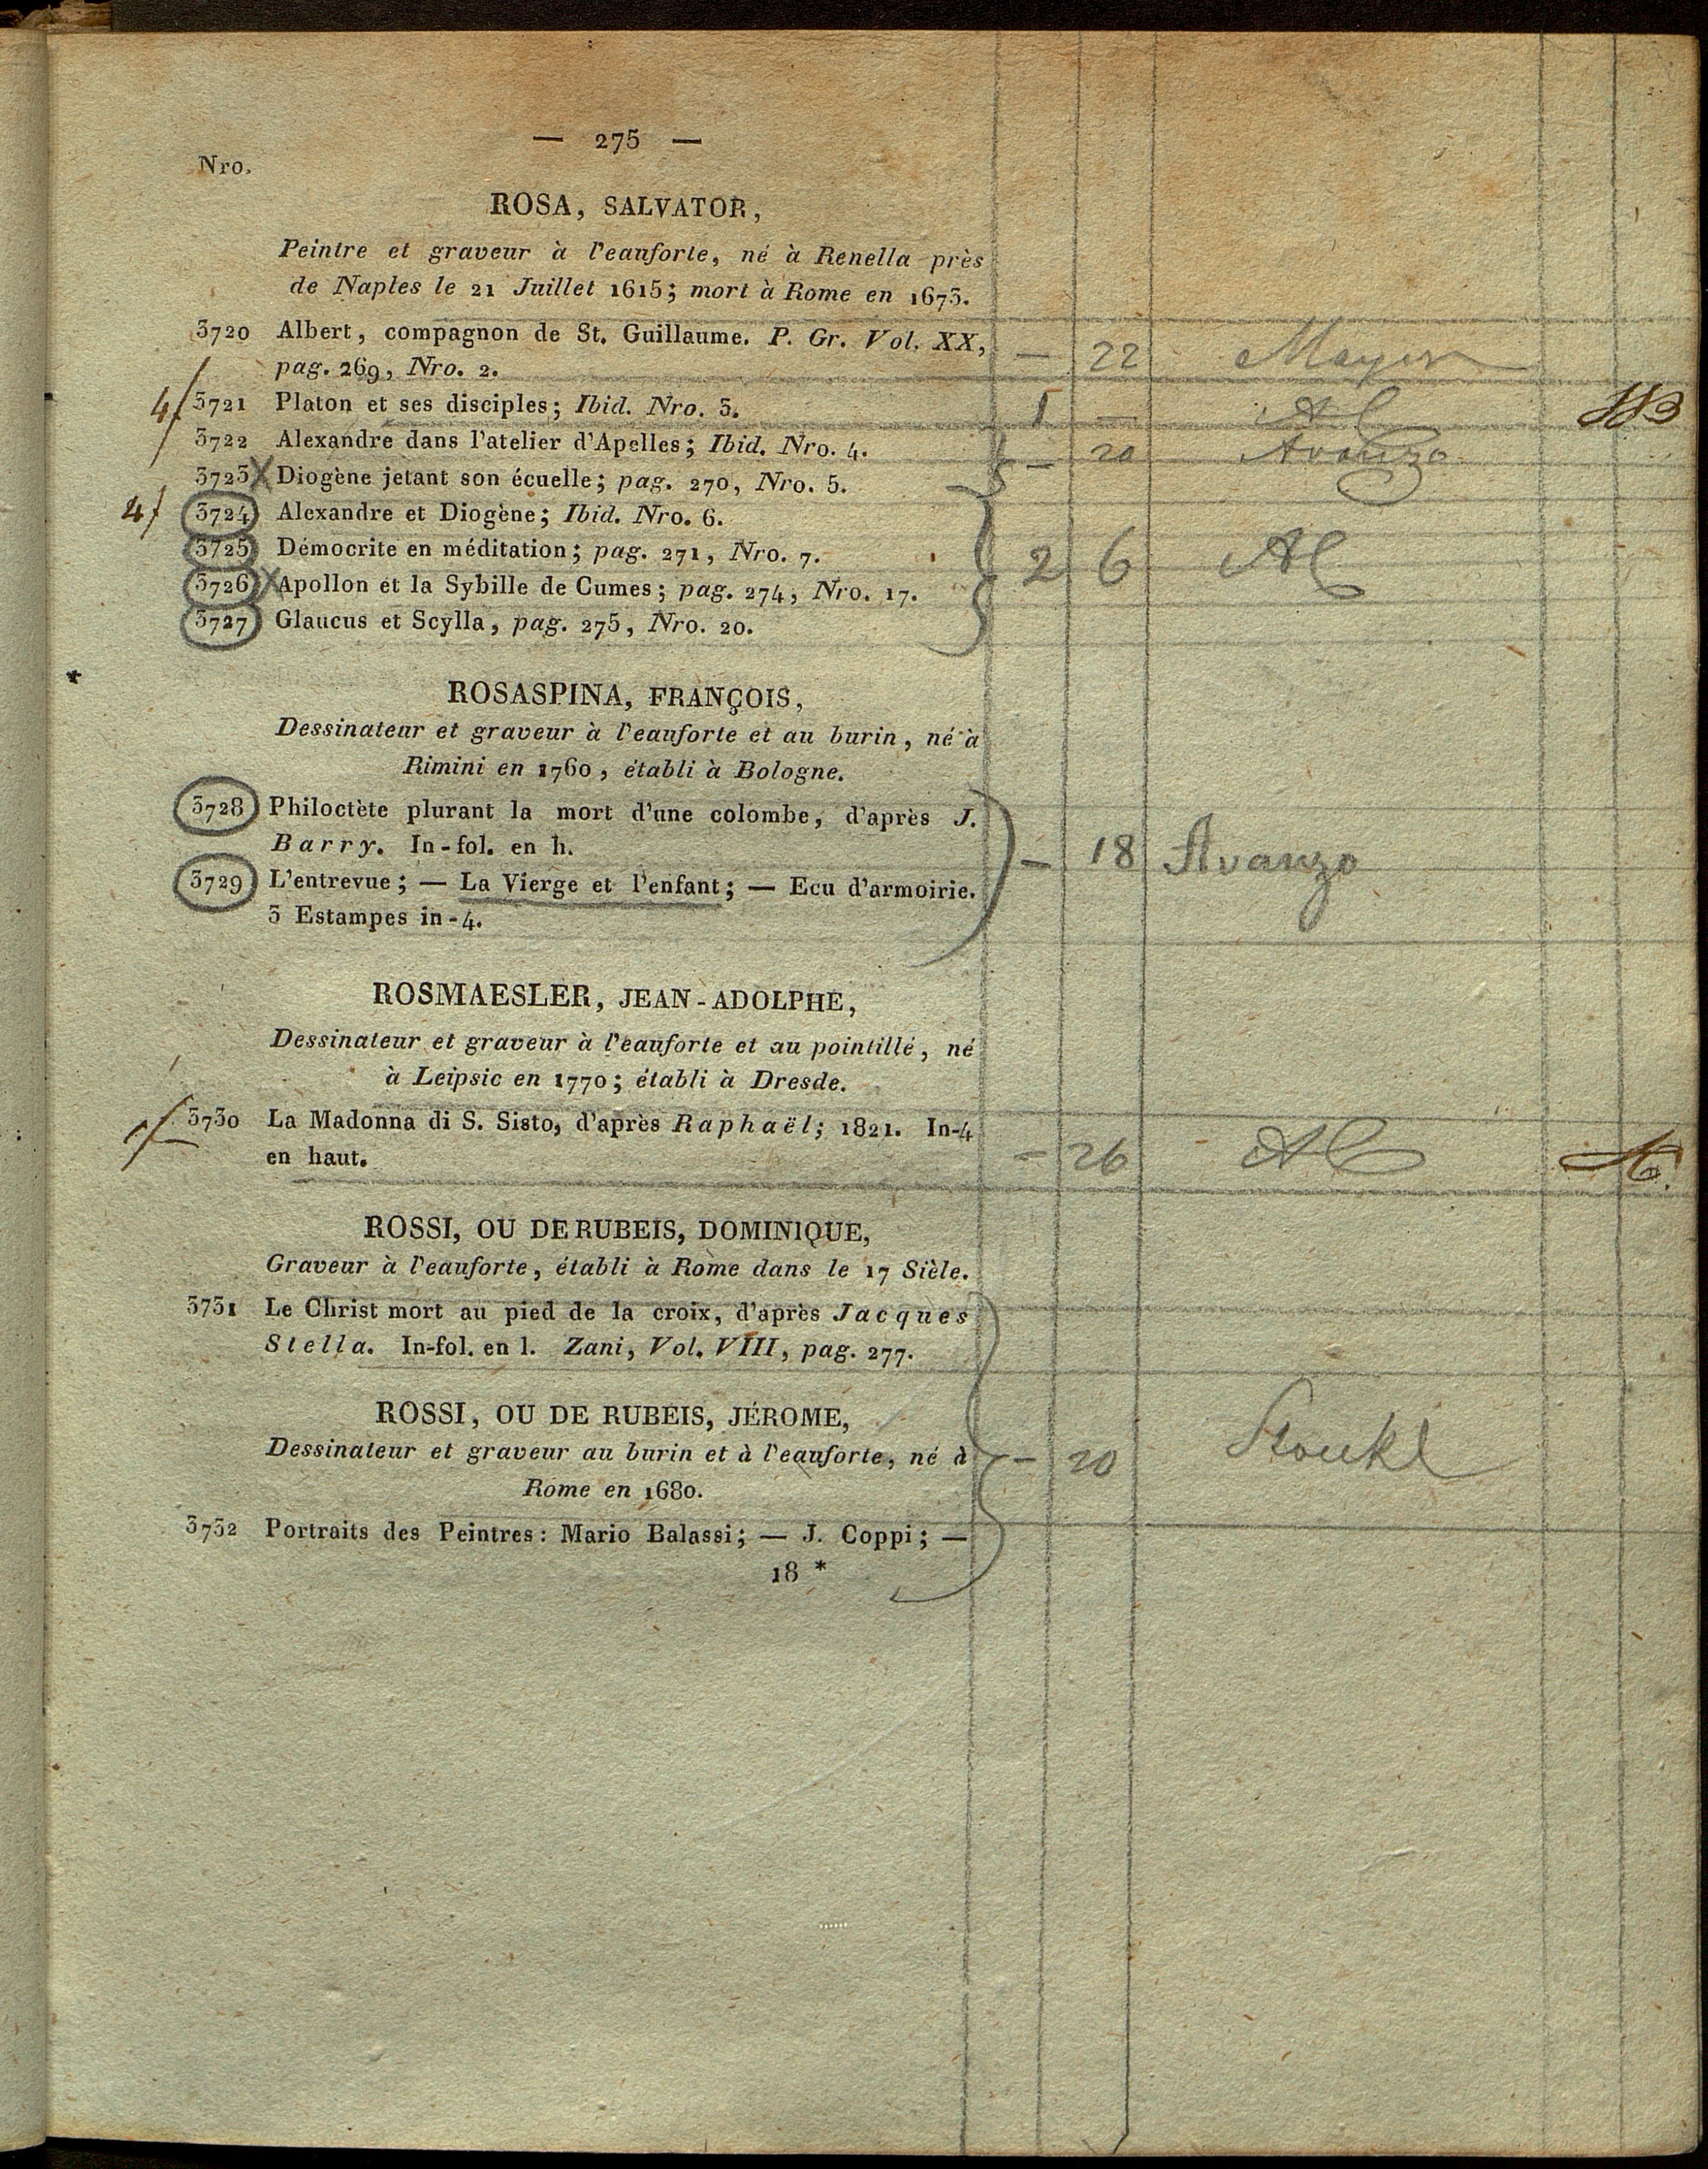 — 275 —
Nro.
ROSA, SALVATOR,
Peintre et graveur à l'eauforte, né à Renella près
de Naples le 21 Juillet 1615; mort à Rome en 1673.
3720 Albert, compagnon de St. Guillaume. P. Gr. Vol. XX,
pag. 269, Nro. 2. — 22 Mayer
4/ 3721 Platon et ses disciples; Ibid. Nro. 3. 1 —
3722 Alexandre dans l'atelier d'Apelles; Ibid. Nro. 4. — 20 Avanzo
3723 X Diogène jetant son écuelle; pag. 270, Nro. 5.
4/ 3724 Alexandre et Diogène; Ibid. Nro. 6.
3725 Démocrite en méditation; pag. 271, Nro. 7. 2 6
3726 X Apollon et la Sybille de Cumes; pag. 274, Nro. 17.
3727 Glaucus et Scylla, pag. 275, Nro. 20.
ROSASPINA, FRANÇOIS,
Dessinateur et graveur à l'eauforte et au burin, né à
Rimini en 1760, établi à Bologne.
3728 Philoctète plurant la mort d'une colombe, d'après J.
Barry. In-fol. en h. — 18 Avanzo
3729 L'entrevue; — La Vierge et l'enfant; — Ecu d'armoirie.
3 Estampes in-4.
ROSMAESLER, JEAN-ADOLPHE,
Dessinateur et graveur à l'eauforte et au pointillé, né
à Leipsic en 1770; établi à Dresde.
3730 La Madonna di S. Sisto, d'après Raphaël; 1821. In-4
en haut. — 26
ROSSI, OU DE RUBEIS, DOMINIQUE,
Graveur à l'eauforte, établi à Rome dans le 17 Sièle.
3731 Le Christ mort au pied de la croix, d'après Jacques
Stella. In-fol. en l. Zani, Vol. VIII, pag. 277.
ROSSI, OU DE RUBEIS, JÉROME,
Dessinateur et graveur au burin et à l'eauforte, né à — 20
Rome en 1680.
3732 Portraits des Peintres: Mario Balassi; — J. Coppi; —
18 *